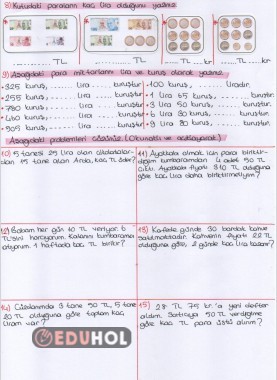 8) Kutudaki paraların kaç lira olduğunu yazınız.
.......... TL
......... TL
....... TL ..... kr
..... TL ..... kr
9) Aşağıdaki para miktarlarını lira ve kuruş olarak yazınız.
• 325 kuruş, ..... lira ..... kuruştur.
• 100 kuruş, ..... liradır.
• 255 kuruş, ..... lira ..... kuruştur.
• 1 lira 65 kuruş, ..... kuruştur.
• 780 kuruş, ..... lira ..... kuruştur.
• 3 lira 50 kuruş, ..... kuruştur.
• 460 kuruş, ..... lira ..... kuruştur.
• 4 lira 80 kuruş, ..... kuruştur.
• 905 kuruş, ..... lira ..... kuruştur.
• 9 lira 80 kuruş, ..... kuruştur.
Aşağıdaki problemleri çözünüz. (Okunaklı ve açıklayarak)
10) 5 tanesi 25 lira olan çikolatalardan 15 tane alan Arda, kaç TL öder?
11) Ayakkabı almak için para biriktirdiğim kumbaramdan 4 adet 50 TL çıktı. Ayakkabı fiyatı 310 TL olduğuna göre kaç lira daha biriktirmeliyim?
12) Babam her gün 10 TL veriyor. 6 TL'sini harcıyorum. Kalanını kumbarama atıyorum. 1 haftada kaç TL birikir?
13) Kafede günde 30 bardak kahve satılmaktadır. Kahvenin fiyatı 22 TL olduğuna göre, 2 günde kaç lira kazanır?
14) Cüzdanımda 3 tane 50 TL, 5 tane 20 TL olduğuna göre toplam kaç liram var?
15) 28 TL 75 kr.'a yeni defter aldım. Satıcıya 50 TL verdiğime göre kaç TL para üstü alırım?
EDUHOL